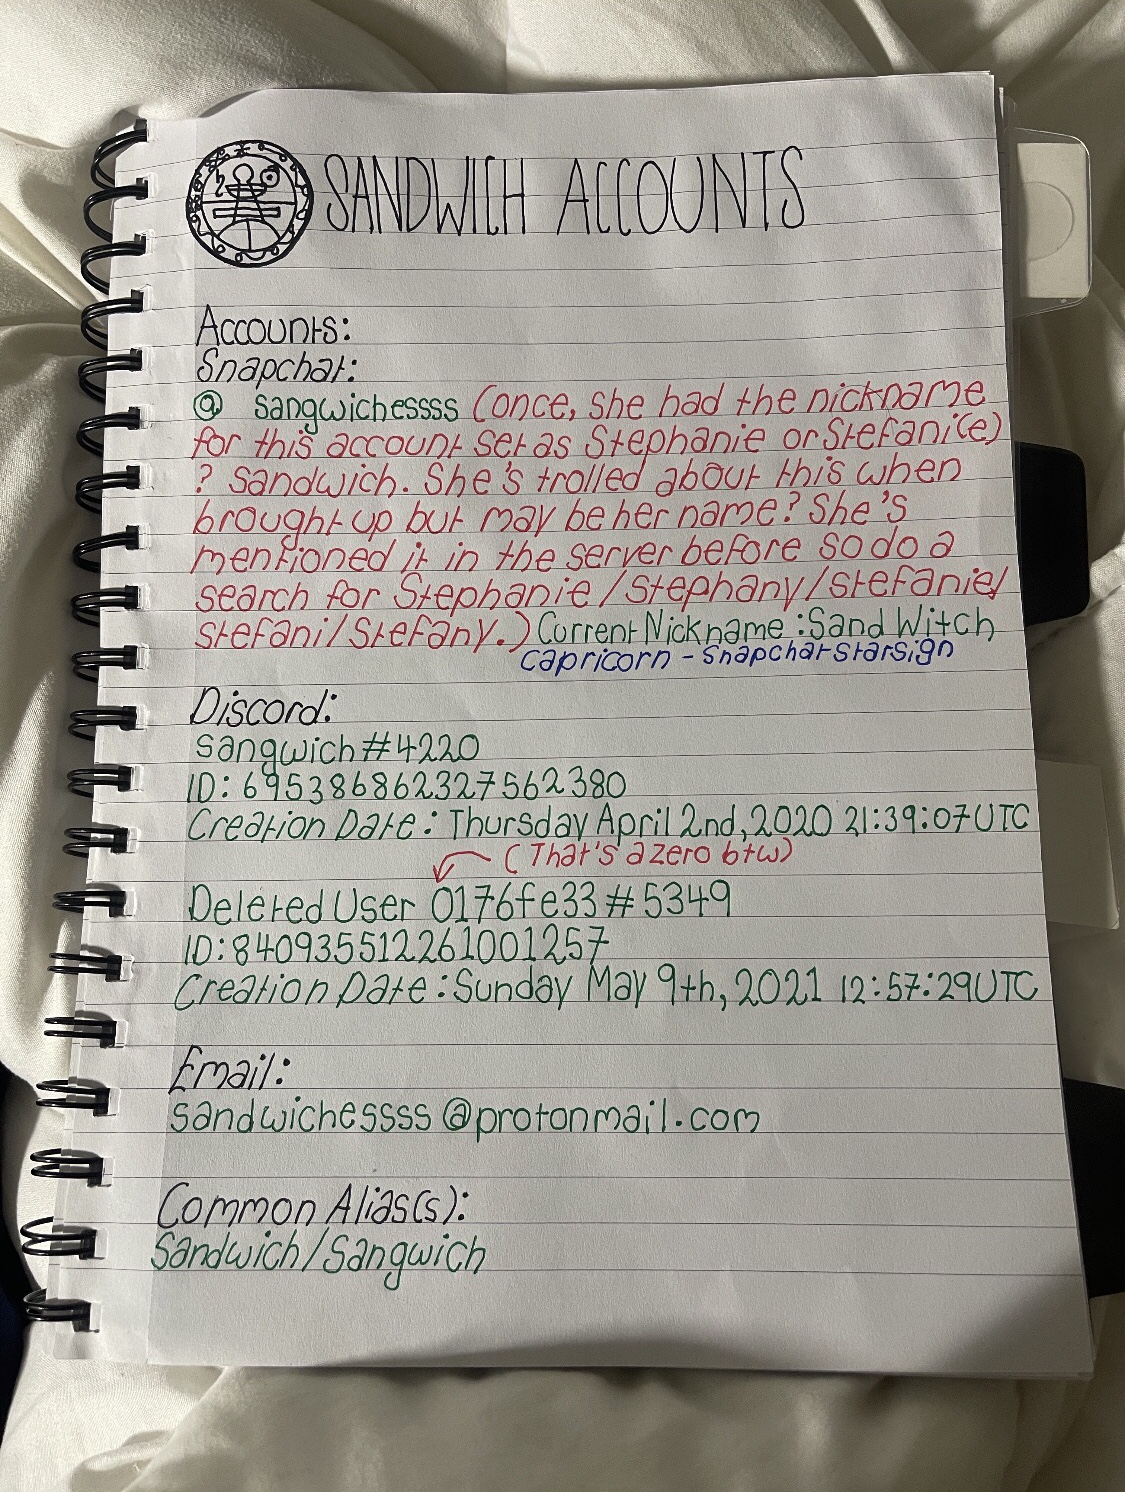 SANDWICH ACCOUNTS
Accounts:
Snapchat:
@ sangwichessss (once, she had the nickname
for this account set as Stephanie or Stefani(e)
? Sandwich. She's trolled about this when
brought up but may be her name? She's
mentioned it in the server before so do a
search for Stephanie/Stephany/Stefanie/
Stefani/Stefany.) Current Nickname: Sand Witch
Capricorn - Snapchat starsign
Discord:
sangwich#4220
ID: 695386862327562380
Creation Date: Thursday April 2nd, 2020 21:39:07 UTC
(That's a zero btw)
Deleted User 0176fe33#5349
ID: 840935512261001257
Creation Date: Sunday May 9th, 2021 12:57:29 UTC
Email:
sandwichessss@protonmail.com
Common Alias(s):
Sandwich/Sangwich